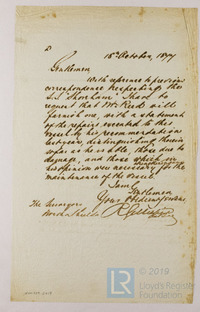 15th October, 1877
Gentlemen
With reference to previous
correspondence respecting the
S.S. Shoreham I have to
request that Mr Reed will
furnish me, with a statement
of the repairs executed to the
vessel by his recommendation
last year, distinguishing therein
so far as he is able, those due to
damage, and those which in
his opinion were necessary for the
maintenance of the vessel.
I am,
Gentlemen
Your Obedient
The Surveyors
© 2019
LR
Lloyd's Register
Foundation